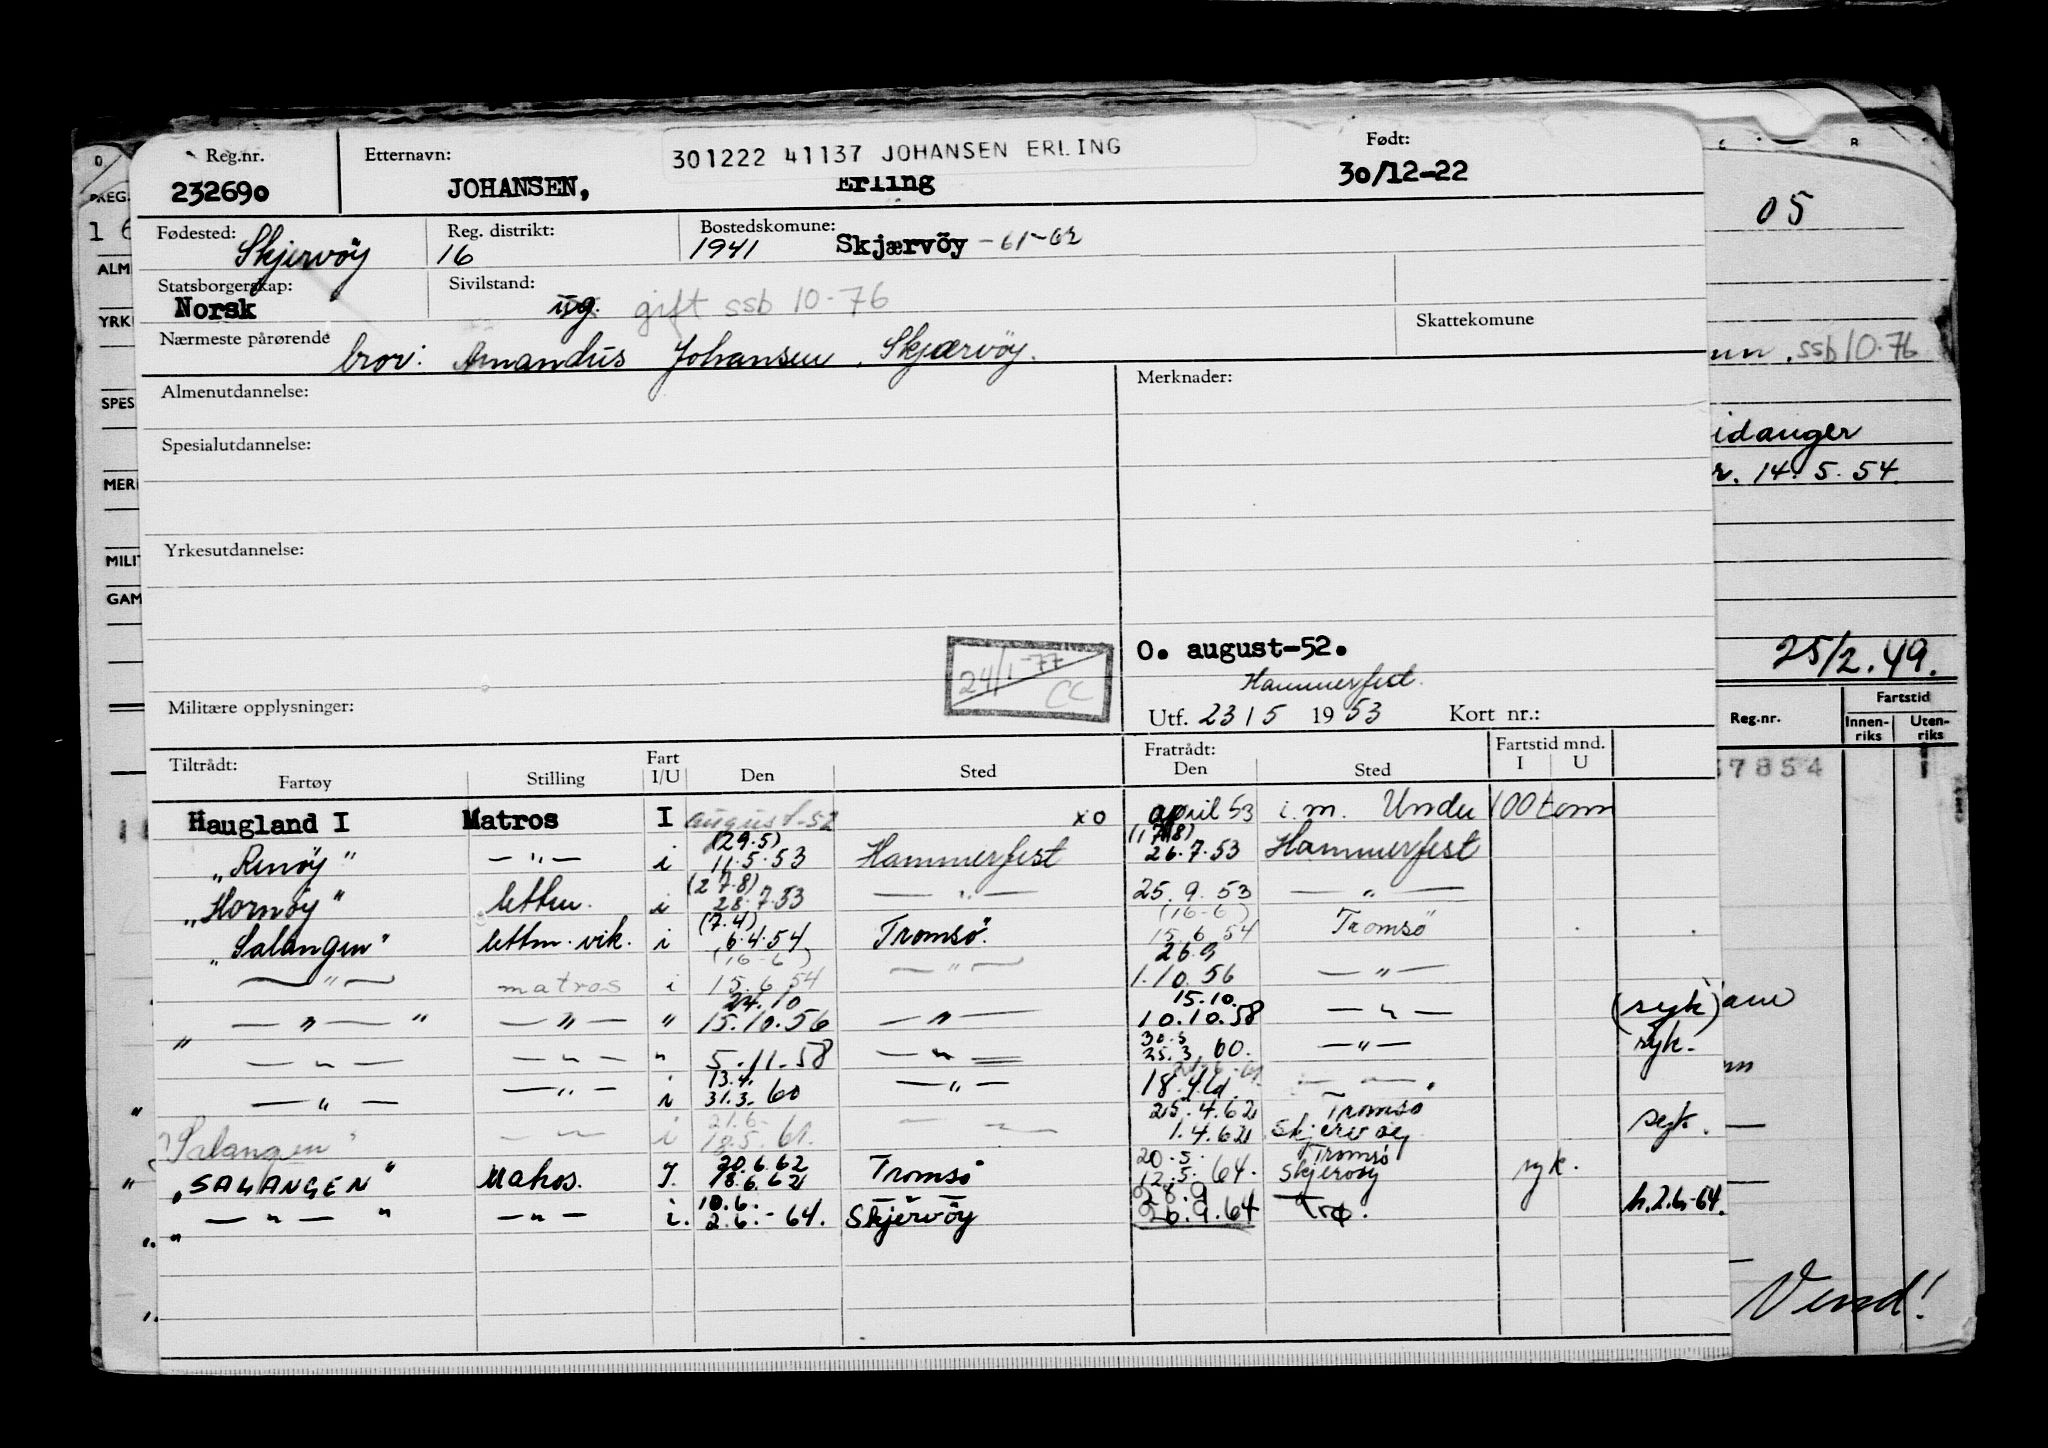 Reg.nr. Etternavn: 301222 41137 JOHANSEN ERLING Født:
232690 JOHANSEN, Erling 30/12-22
Fødested: Skjervöy Reg. distrikt: 16 Bostedskomune: 1941 Skjærvöy - 61-62
Statsborgerskap: Norsk Sivilstand: ug. gift ssb 10-76
Nærmeste pårørende bror: Amandus Johansen, Skjærvöy. Skattekomune
Almenutdannelse: Merknader:
Spesialutdannelse:
Yrkesutdannelse:
O. august-52.
24/1-77 CC
Hammerfest.
Militære opplysninger: Utf. 23/5 1953 Kort nr.:
Tiltrådt: Fratrådt: Fartstid mnd.
Fartøy Stilling Fart I/U Den Sted Den Sted I U
Haugland I Matros I august-52 xo april 53 i.m. Under 100 tonn
(29.5) (17/8)
"Renöy" — " — i 11.5.53 Hammerfest 26.7.53 Hammerfest
(27.8)
"Hornöy" lettm. i 28.7.53 — " — 25.9.53 — " —
(7.4) (16-6)
"Salangen" lettm. vik. i 6.4.54 Tromsö. 15.6.54 Tromsö
(16-6) 26.9
— " — matros i 15.6.54 — " — 1.10.56 — " —
24.10 15.10.
— " — " — " — " 15.10.56 — " — 10.10.58 — " — (syk)
30.3
" — " — — " — " 5.11.58 — " — 25.3.60. — " — syk.
13.4.
— " — — " — i 31.3.60 — " — 18.
21.6- 25.4.62 Tromsö
"Salangen" — " — i 18.5.61. — " — 1.4.62 Skjervöy syk.
20.6.62 20.5. Tromsö
"SALANGEN" Matros. I. 18.6.62 Tromsö 12.5.64. Skjervöy syk.
10.6. 28.9
— " — " — " — i. 2.6.-64. Skjervöy 26.9.64 Trø. h.2.6-64.
O R
REG.
1 6 05
ALM
YRK ssb 10-76
SPES
idanger
MER r. 14.5.54.
MILI
GAM
25/2.49.
Fartstid
Reg.nr. Innen-riks Uten-riks
7854
Vend!